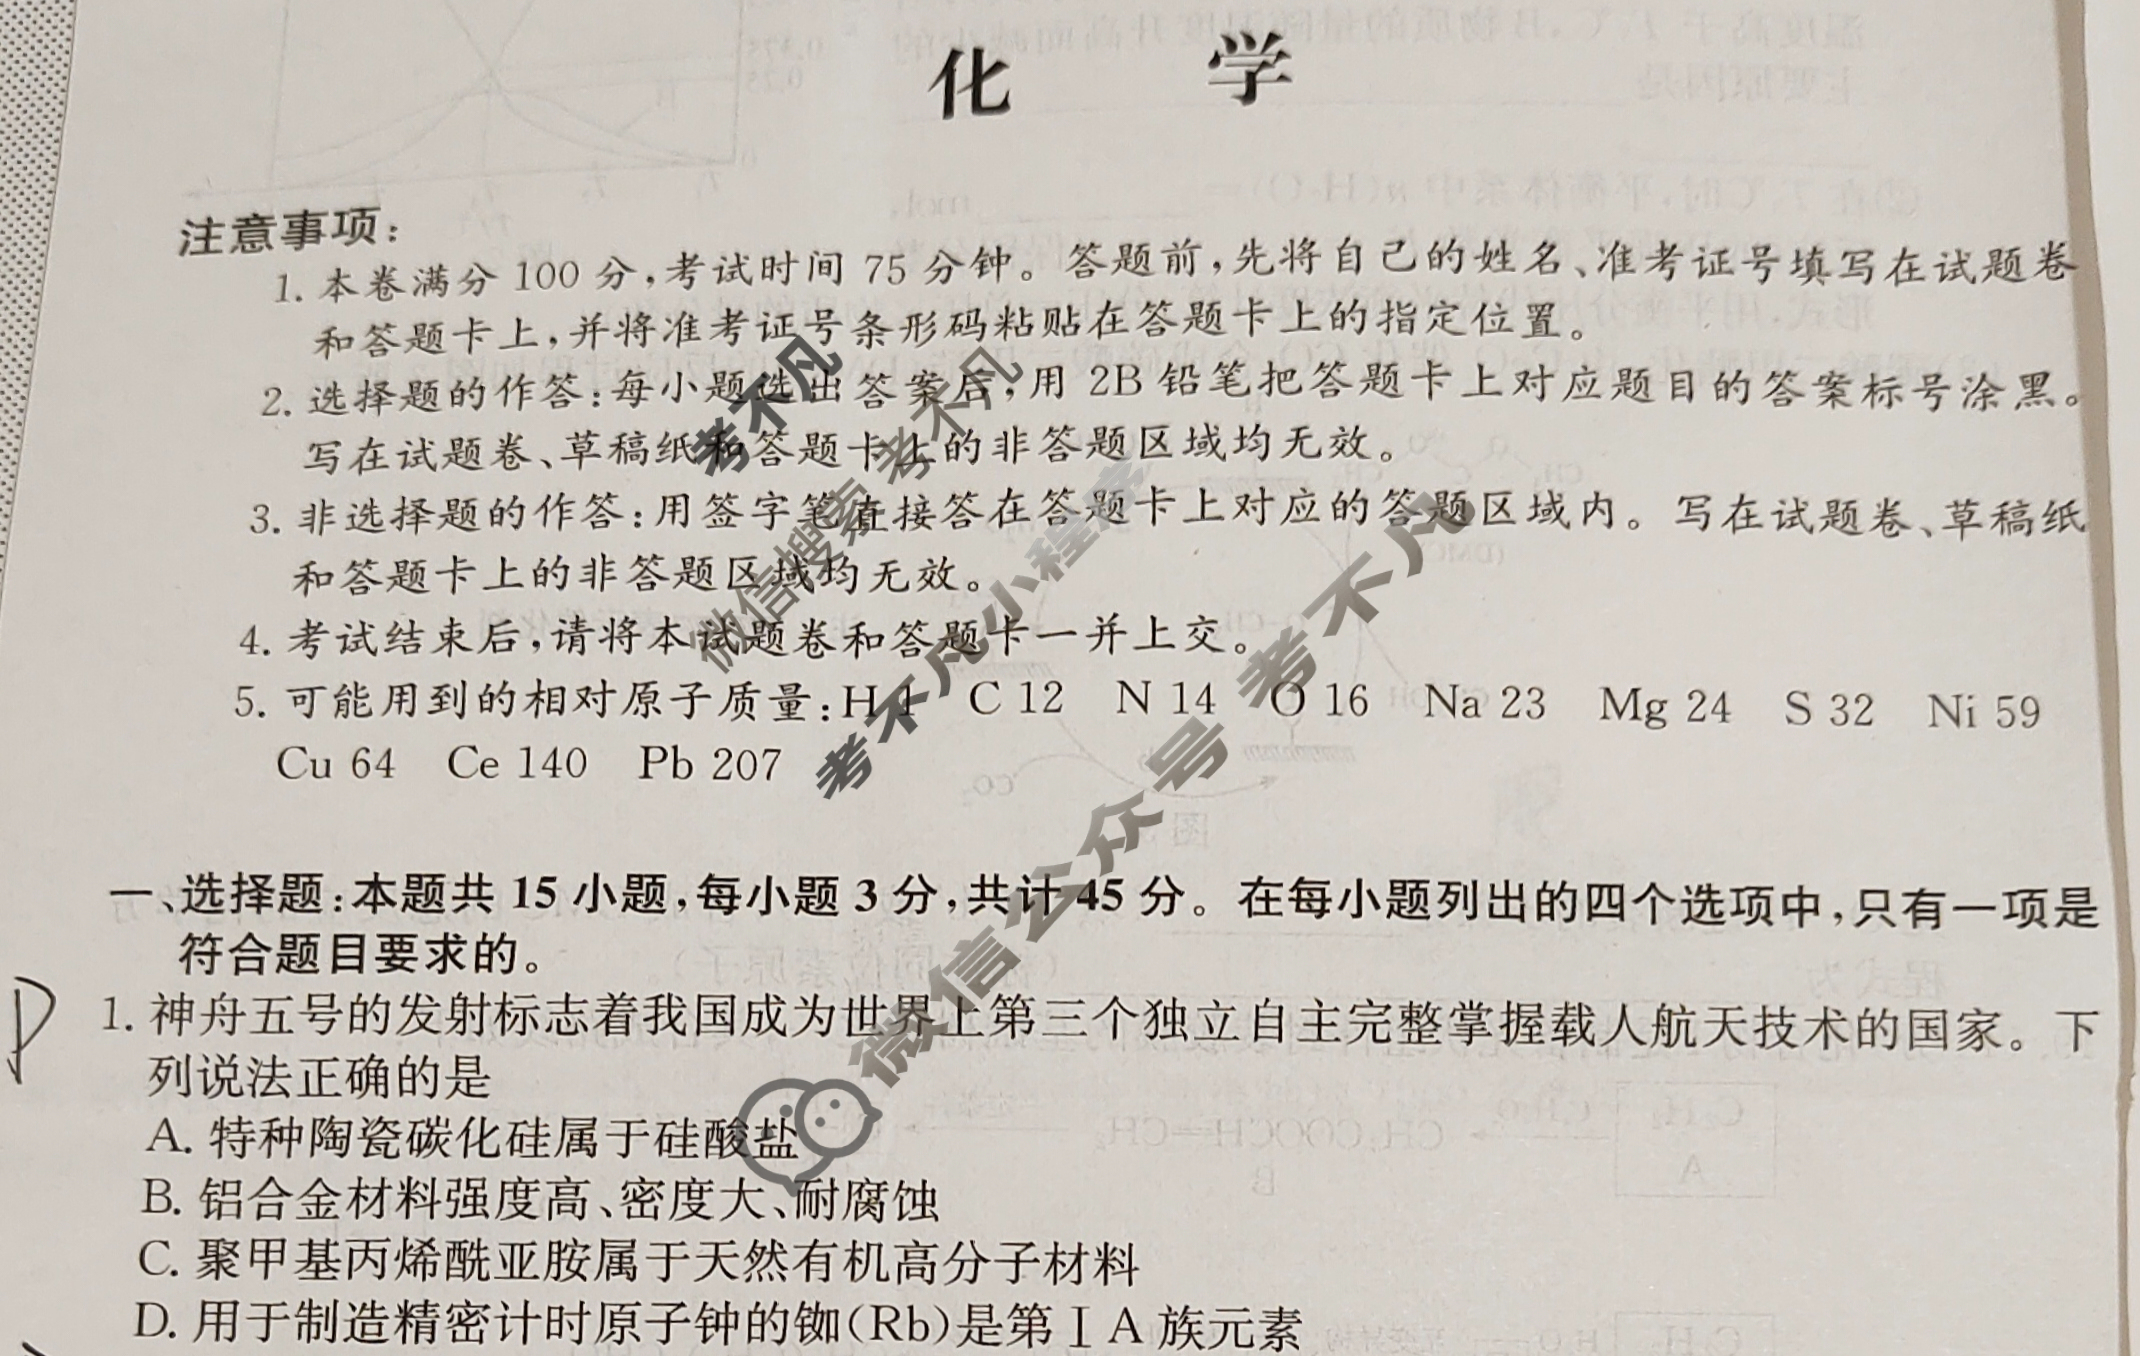 化 学
注意事项：
1. 本卷满分 100 分，考试时间 75 分钟。答题前，先将自己的姓名、准考证号填写在试题卷
和答题卡上，并将准考证号条形码粘贴在答题卡上的指定位置。
2. 选择题的作答：每小题选出答案后，用 2B 铅笔把答题卡上对应题目的答案标号涂黑。
写在试题卷、草稿纸和答题卡上的非答题区域均无效。
3. 非选择题的作答：用签字笔直接答在答题卡上对应的答题区域内。写在试题卷、草稿纸
和答题卡上的非答题区域均无效。
4. 考试结束后，请将本试题卷和答题卡一并上交。
5. 可能用到的相对原子质量：H 1 C 12 N 14 O 16 Na 23 Mg 24 S 32 Ni 59
Cu 64 Ce 140 Pb 207
一、选择题：本题共 15 小题，每小题 3 分，共计 45 分。在每小题列出的四个选项中，只有一项是
符合题目要求的。
D
1. 神舟五号的发射标志着我国成为世界上第三个独立自主完整掌握载人航天技术的国家。下
列说法正确的是
A. 特种陶瓷碳化硅属于硅酸盐
B. 铝合金材料强度高、密度大、耐腐蚀
C. 聚甲基丙烯酰亚胺属于天然有机高分子材料
D. 用于制造精密计时原子钟的铷(Rb)是第ⅠA 族元素
考不凡
微信搜索 考不凡
考不凡小程序
微信公众号 考不凡